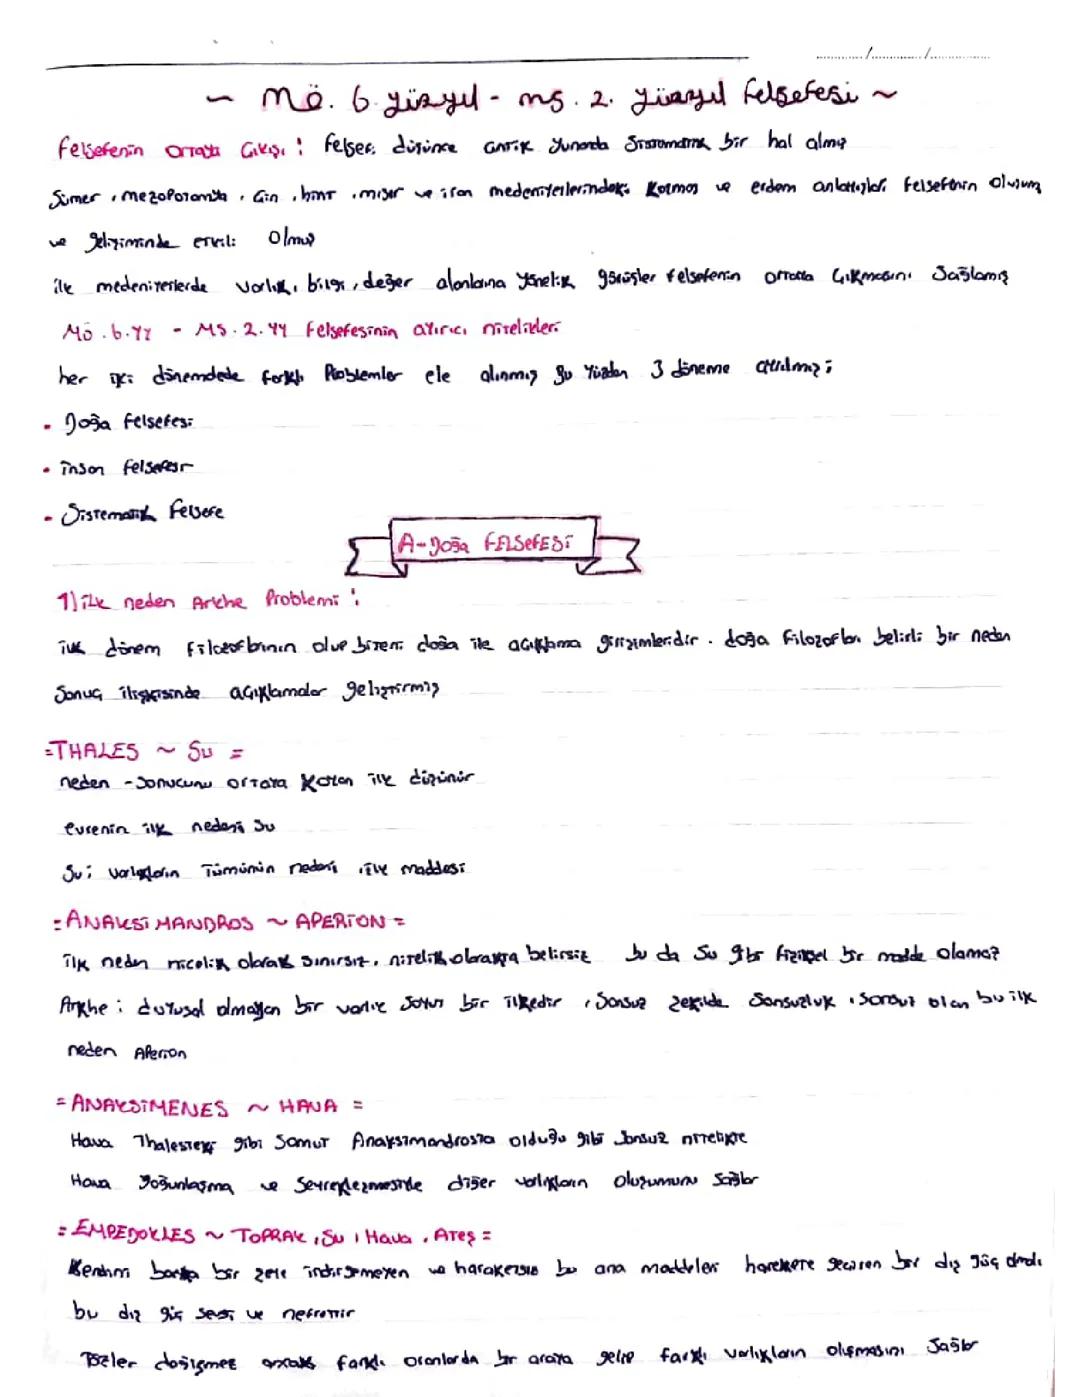 ~ MÖ. 6. yüzyıl - ms. 2. yüzyıl Felsefesi ~
Felsefenin Ortaya Çıkışı : felsefi düşünce antik yunanda Sistematik bir hal almış
Sümer, mezopotamya, Çin, hint, mısır ve iran medeniyetlerindeki kozmos ve erdem anlattıkları felsefenin oluşum
ve gelişiminde etkili olmuş
ilk medeniyetlerde varlık, bilgi, değer alanlarına yönelik görüşler felsefenin ortaya çıkmasını Sağlamış
Mö.6.yy - MS.2.yy Felsefesinin ayırıcı nitelikleri
her iki dönemdede farklı Problemler ele alınmış şu yüzden 3 döneme ayrılmış;
• Doğa felsefesi
• insan felsefesi
• Sistematik Felsefe
A-Doğa FELSEFESİ
1) ilk neden Arkhe Problemi :
ilk dönem filozoflarının oluş bizeni doğa ile açıklama girişimleridir. doğa filozofları belirli bir neden
Sonuç ilişkisinde açıklamalar geliştirmiş
=THALES ~ Su =
neden - Sonucunu ortaya koyan ilk düşünür
evrenin ilk nedeni su
Su; varlıkların Tümünün nedeni, ilk maddesi
=ANAKSİMANDROS ~ APERİON =
ilk neden nicelik olarak sınırsız, nitelik olarakta belirsiz bu da Su gibi fiziksel bir madde olamaz
Arkhe : duyusal olmayan bir varlık soyut bir ilkedir, Sonsuz şekilde Sonsuzluk, sonsuz olan bu ilk
neden Aperion
=ANAKSİMENES ~ HAVA =
Hava Thalesteki gibi Somut Anaksimandrosta olduğu gibi Sonsuz nitelikte
Hava yoğunlaşma ve Seyrekleşmesiyle diğer varlıkların Oluşumunu sağlar
=EMPEDOKLES ~ TOPRAK, Su, Hava, Ateş =
Kendini başka bir şeye indirgemeyen ve hareketsiz bu ana maddeleri harekete geçiren bir dış güç olmalı
bu dış güç sevgi ve nefrettir
Tözler değişmez ancak farklı oranlarda bir araya gelip farklı varlıkların oluşmasını Sağlar